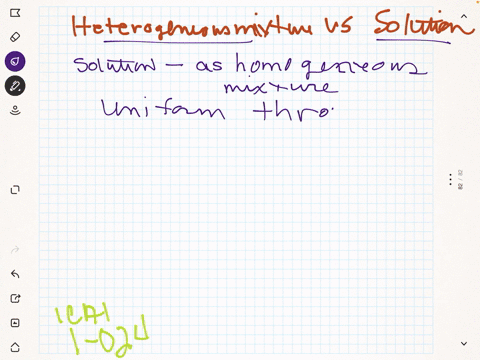 Heterogeneous mixture vs Solution
Solution - as homogeneous
mixture
Uniform thro
1-024